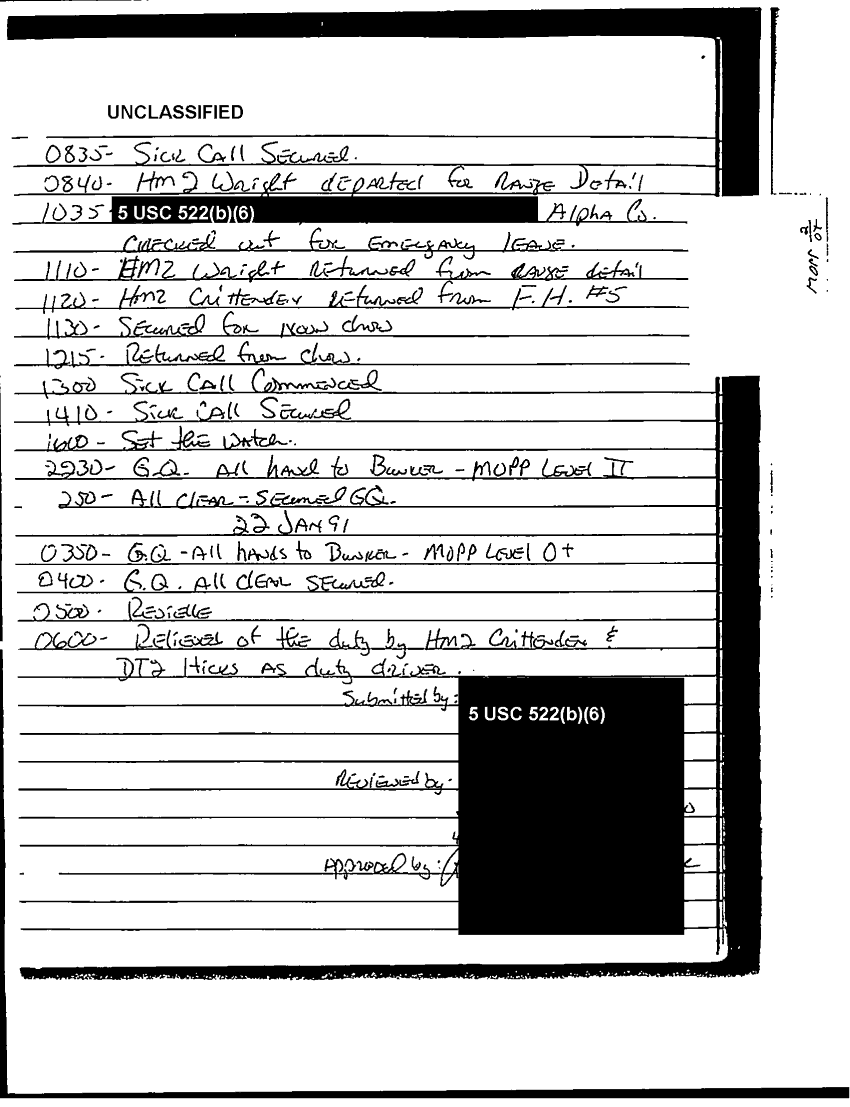 UNCLASSIFIED
0835- Sick Call Secured.
0840- HM2 Wright departed for Range Detail
1035- 5 USC 522(b)(6) Alpha Co.
Checked out for Emergency leave.
1110- HM2 Wright Returned from range detail
1120- HM2 Crittenden returned from F.H. #5
1130- Secured for noon chow
1215- Returned from chow.
1300 Sick Call Commenced
1410- Sick Call Secured
1600- Set the watch.
G.Q. All hand to Bunker - MOPP Level II
250- All clear - Secured GQ.
22 JAN 91
0350- G.Q - All hands to Bunker - MOPP Level 0+
0400- G.Q. All clear secured.
0500- Revielle
0600- Relieved of the duty by HM2 Crittenden &
DT2 Hicks as duty driver.
Submitted by:
5 USC 522(b)(6)
Reviewed by-
Approved by:
MOPP